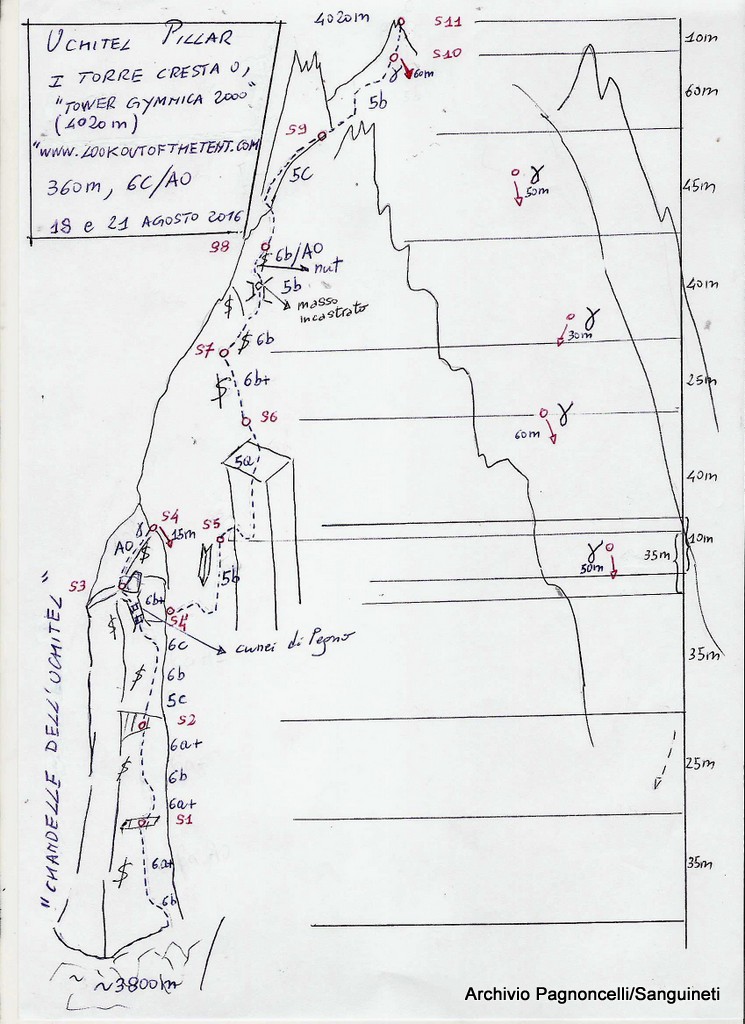 UCHITEL PILLAR
I TORRE CRESTA O,
"TOWER GYMMICA 2000"
(4020m)
"WWW.LOOKOUTOFTHETENT.COM
360m, 6C/AO
18 e 21 AGOSTO 2016
4020m
S11
S10
10m
60m
5b
60m
S9
5C
50m
45m
S8
6b/AO
nut
5b
masso
incastrato
40m
30m
S7
6b
6b+
25m
S6
60m
5a
40m
S4
15m
S5
AO
10m
35m
50m
S3
5b
6b+
S4'
cunei di legno
6c
6b
5c
35m
S2
6a+
6b
6a+
25m
S1
6a+
6b
35m
"CHANDELLE DELL'UCHITEL"
~ ~3800m
Archivio Pagnoncelli/Sanguineti